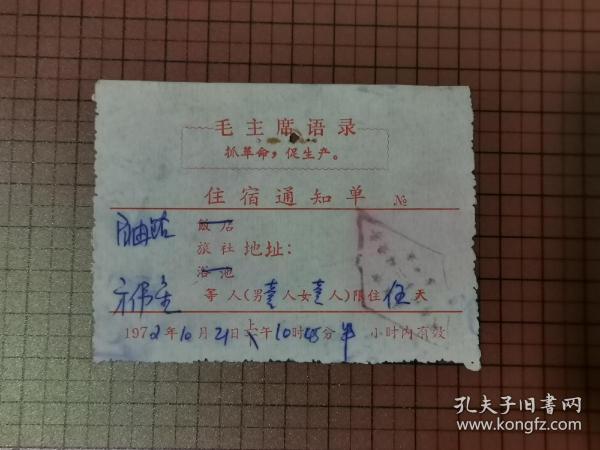 毛主席语录
抓革命，促生产。
住宿通知单 №
饭店
旅社 地址：
浴池
等人(男壹人女壹人)限住伍天
1972年10月21日上午10时45分半小时内有效
孔夫子旧书网
www.kongfz.com